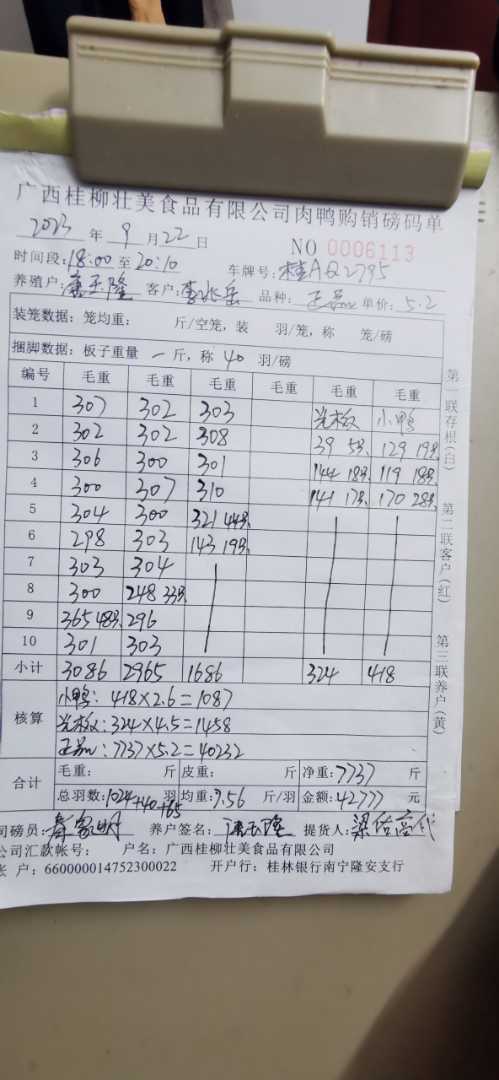 广西桂柳壮美食品有限公司肉鸭购销磅码单
2023 年 9 月 22 日 NO 0006113
时间段:18:00 至 20:10 车牌号: 桂AQ2795
养殖户: 隆 客户: 李 岳 品种: 正 单价: 5.2
装笼数据: 笼均重: 斤/空笼, 装 羽/笼, 称 笼/磅
捆脚数据: 板子重量 一 斤, 称 40 羽/磅
编号 毛重 毛重 毛重 毛重 毛重 毛重
1 307 302 303 光板 小鸭
2 302 302 308 39 5只 129 19只
3 306 300 301 144 18只 119 18只
4 300 307 310 141 17只 170 28只
5 304 300 321 44只
6 298 303 143 19只
7 303 304
8 300 248 33只
9 365 48只 296
10 301 303
小计 3086 2965 1686 324 418
核算 小鸭: 418×2.6=1087
光板: 324×4.5=1458
正 : 7737×5.2=40232
合计 毛重: 斤 皮重: 斤 净重: 7737 斤
总羽数: 1024+40+65 羽 均重: 7.56 斤/羽 金额: 42777 元
司磅员: 家明 养户签名: 隆 提货人: 梁
公司汇款帐号: 户名: 广西桂柳壮美食品有限公司
账 户: 660000014752300022 开户行: 桂林银行南宁隆安支行
第一联存根(白)
第二联客户(红)
第三联养户(黄)